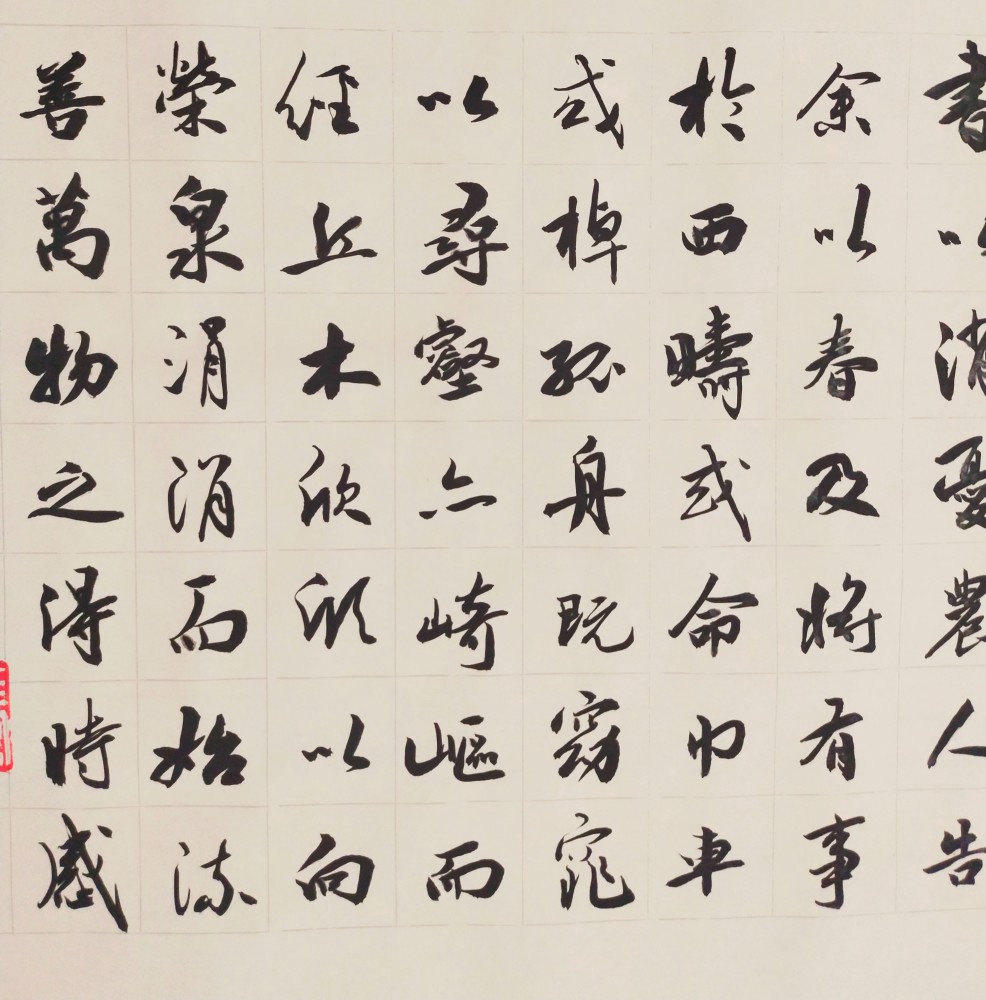 書以消憂農人告
余以春及將有事
於西疇或命巾車
或棹孤舟既窈窕
以尋壑亦崎嶇而
經丘木欣欣以向
榮泉涓涓而始流
善萬物之得時感